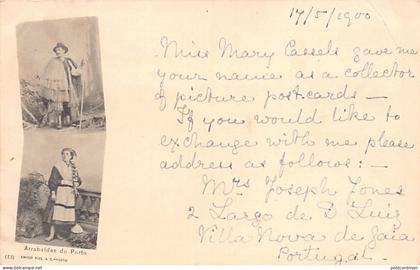 17/5/1900
Miss Mary Cassels gave me
your name as a collector
of picture post-cards —
If you would like to
exchange with me please
address as follows: —
Mrs Joseph Jones
2 Largo de D. Luiz
Villa Nova de Gaia
Portugal —
Arrabaldes do Porto